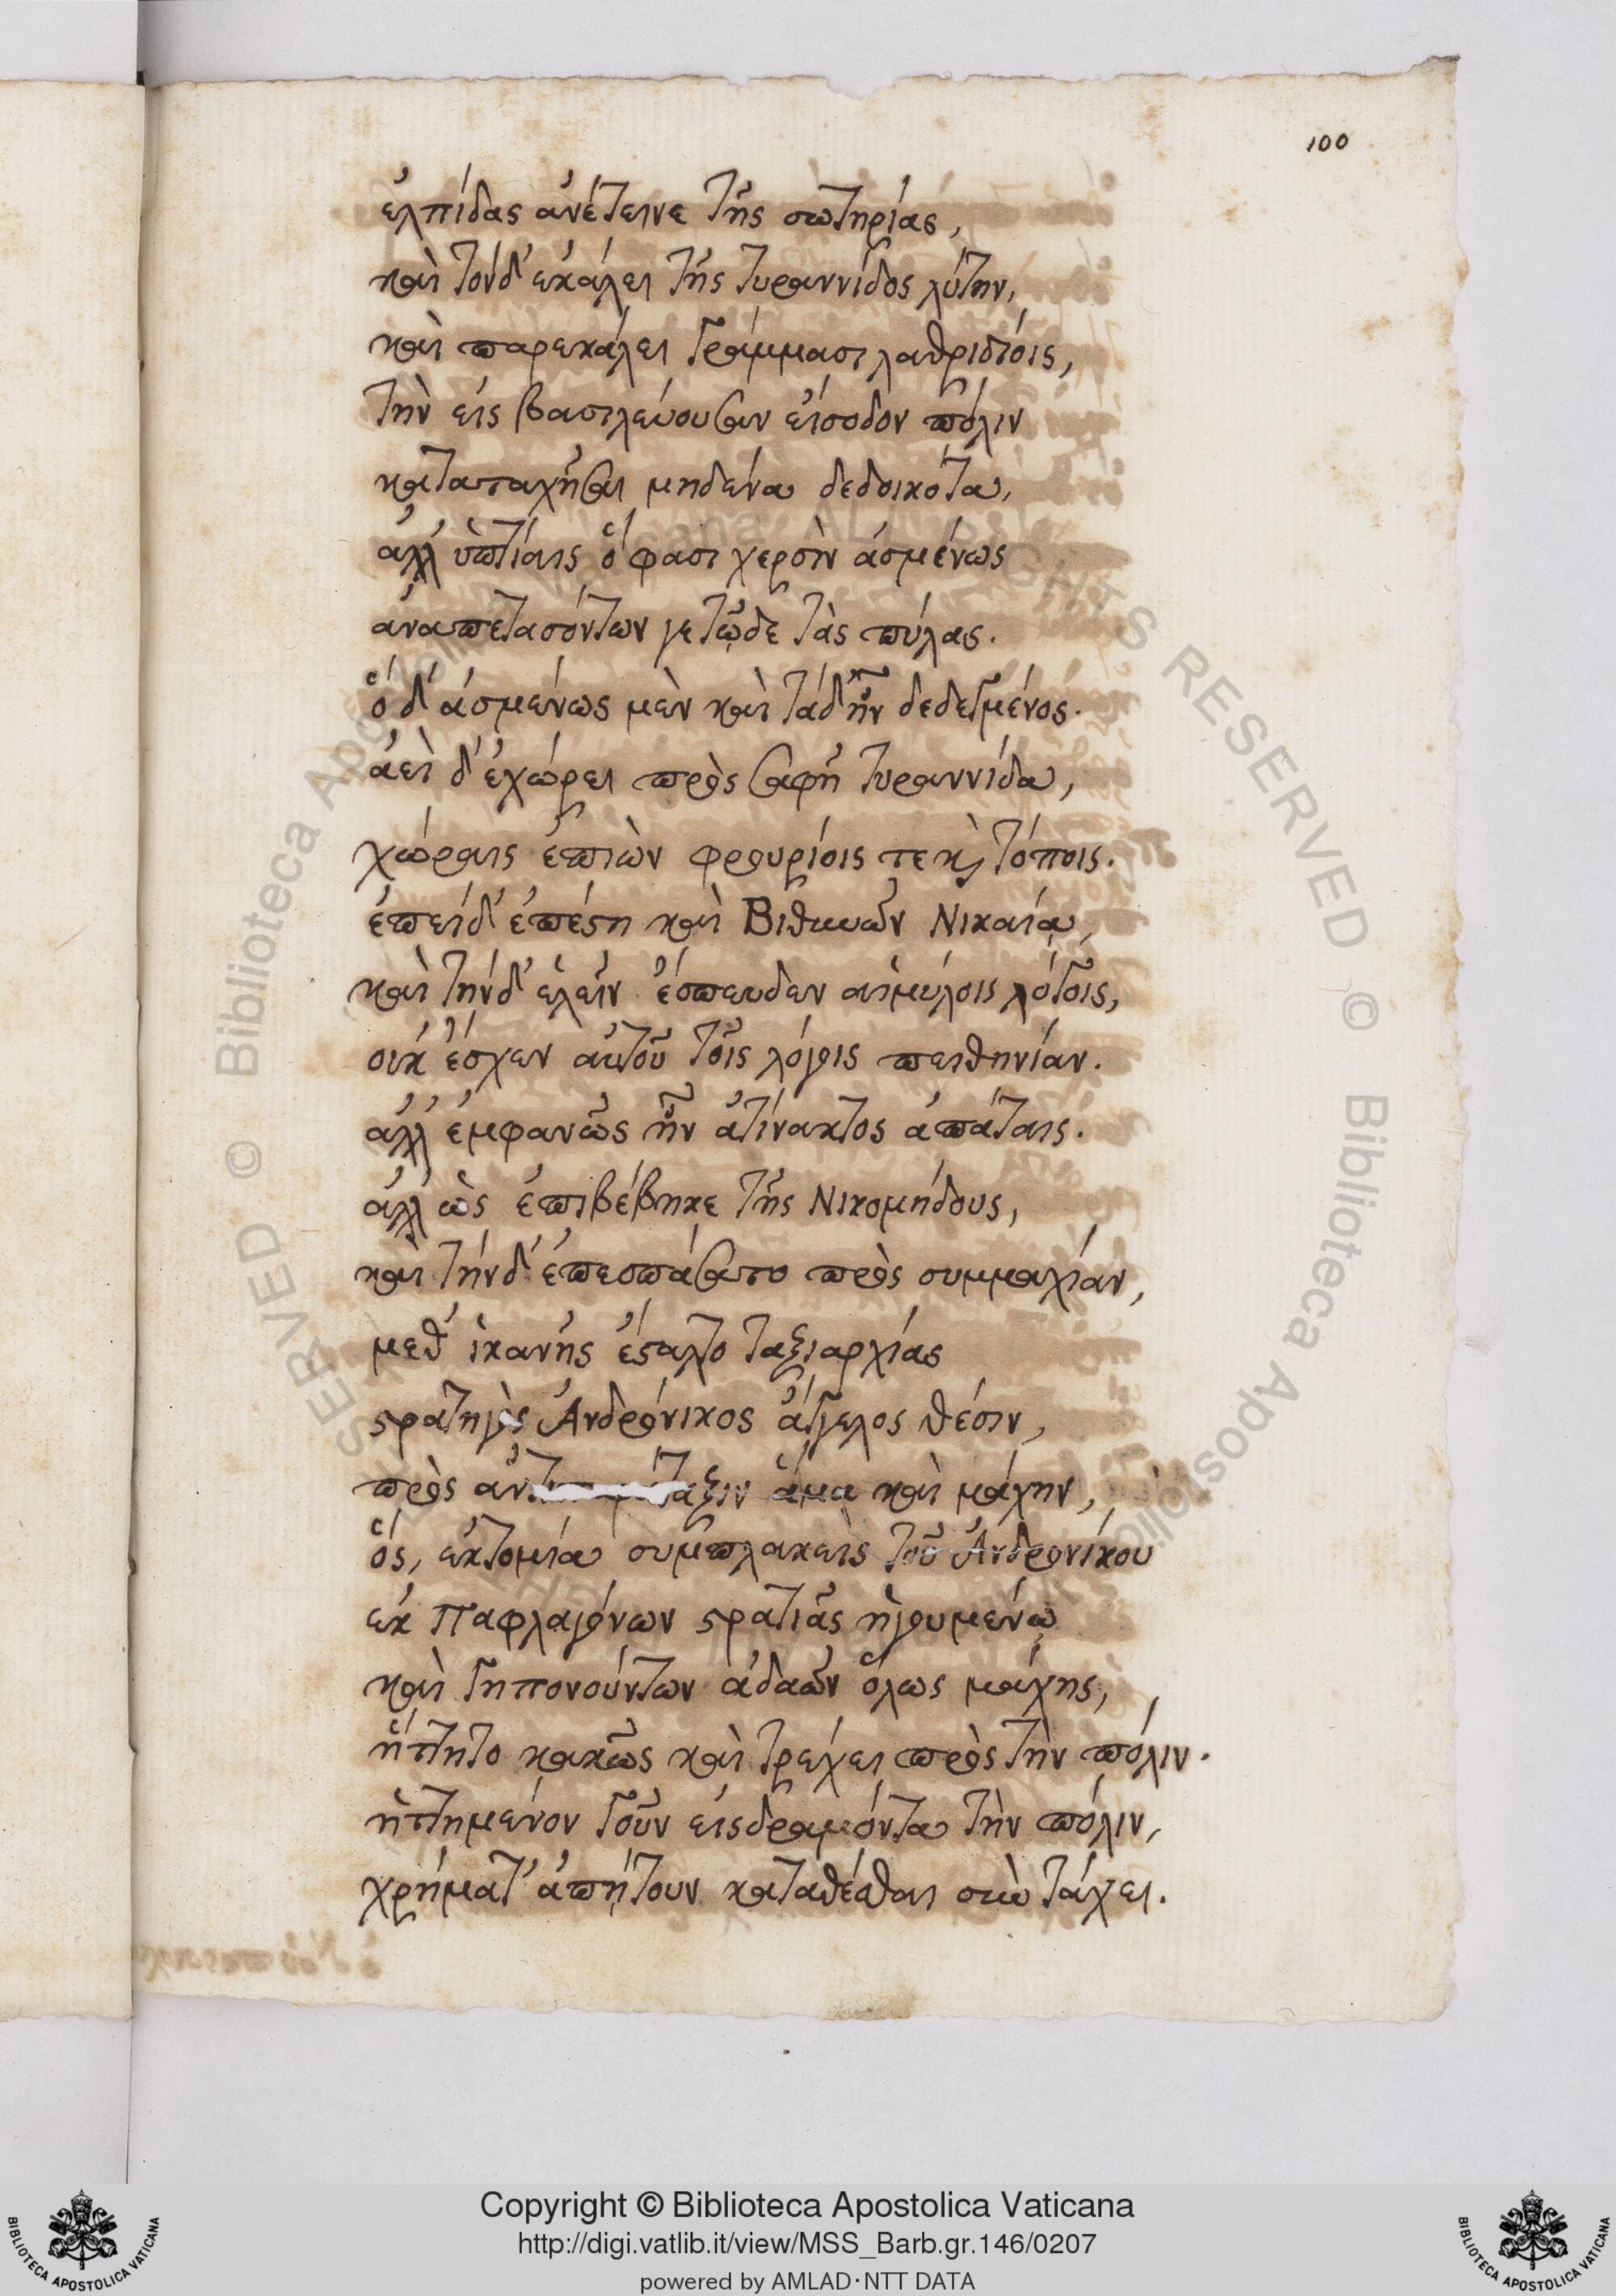 100
ἐλπίδας ἀνέτεινε τῆς σωτηρίας,
καὶ τόνδ' ἐκάλει τῆς τυραννίδος λύτην,
καὶ παρεκάλει γράμμασι λαθριδίοις,
τὴν εἰς βασιλεύουσαν εἴσοδον πόλιν
καταταχῆσαι μηδένα δεδοικότα,
ἀλλ' ὑπτίαις ὅ φασι χερσὶν ἀσμένως
ἀναπετασόντων γε τῷδε τὰς πύλας.
ὁ δ' ἀσμένως μὲν καὶ τάδ' ἦν δεδεγμένος.
ἀεὶ δ' ἐχώρει πρὸς σαφῆ τυραννίδα,
χώραις ἐπιὼν φρουρίοις τε καὶ τόποις.
ἐπεὶ δ' ἐπέστη καὶ Βιθυνῶν Νικαίᾳ,
καὶ τήνδ' ἑλεῖν ἔσπευδεν αἱμύλοις λόγοις,
οὐκ ἔσχεν αὐτοῦ τοῖς λόγοις πειθηνίαν.
ἀλλ' ἐμφανῶς ἦν ἀτίνακτος ἀπάταις.
ἀλλ' ὡς ἐπιβέβηκε τῆς Νικομήδους,
καὶ τήνδ' ἐπεσπάσατο πρὸς συμμαχίαν,
μεθ' ἱκανῆς ἔσταλτο ταξιαρχίας
στρατηγὸς Ἀνδρόνικος ἄγγελος θέσιν,
πρὸς ἅμα καὶ μάχην,
ὅς, ἐκτομίᾳ συμπλακεὶς τοῦ Ἀνδρονίκου
ἐκ Παφλαγόνων στρατιᾶς ἡγουμένῳ
καὶ γηπονούντων ἀδαῶν ὅλως μάχης,
ἥττητο κακῶς καὶ τρέχει πρὸς τὴν πόλιν.
ἡττημένον γοῦν εἰσδραμόντα τὴν πόλιν,
χρήματ' ἀπῄτουν καταθέσθαι σὺν τάχει.
Copyright © Biblioteca Apostolica Vaticana
http://digi.vatlib.it/view/MSS_Barb.gr.146/0207
powered by AMLAD·NTT DATA